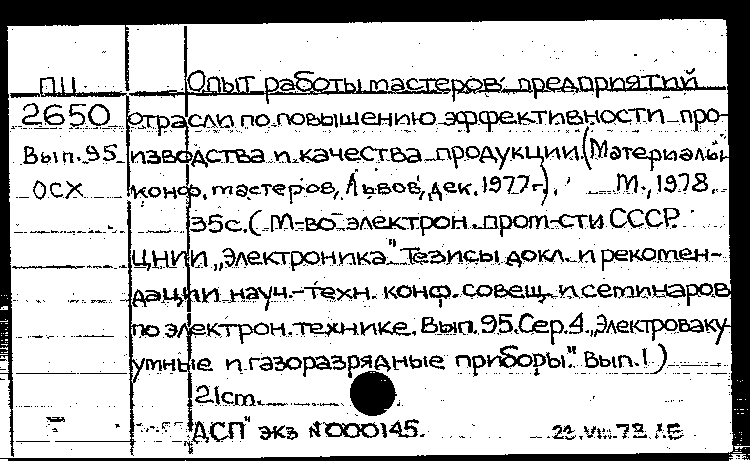 ПЦ Опыт работы мастеров предприятий
2650 отрасли по повышению эффективности про-
Вып. 95 изводства и качества продукции. (Материалы
ОСХ конф. мастеров, Львов, дек. 1977г). М., 1978.
35с. (М-во электрон. пром-сти СССР.
ЦНИИ „Электроника". Тезисы докл. и рекомен-
дации науч.-техн. конф. совещ. и семинаров
по электрон. технике. Вып. 95. Сер. 4. „Электроваку-
умные и газоразрядные приборы". Вып. 1.)
21cm.
ДСП" экз №000145. 22.VIII.78